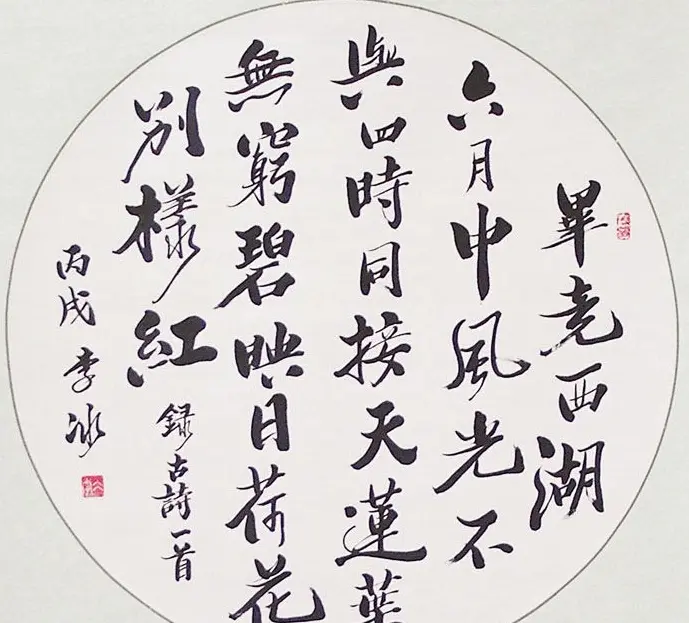 畢竟西湖
六月中風光不
與四時同接天蓮葉
無窮碧映日荷花
別樣紅 錄古詩一首
丙戌 李冰